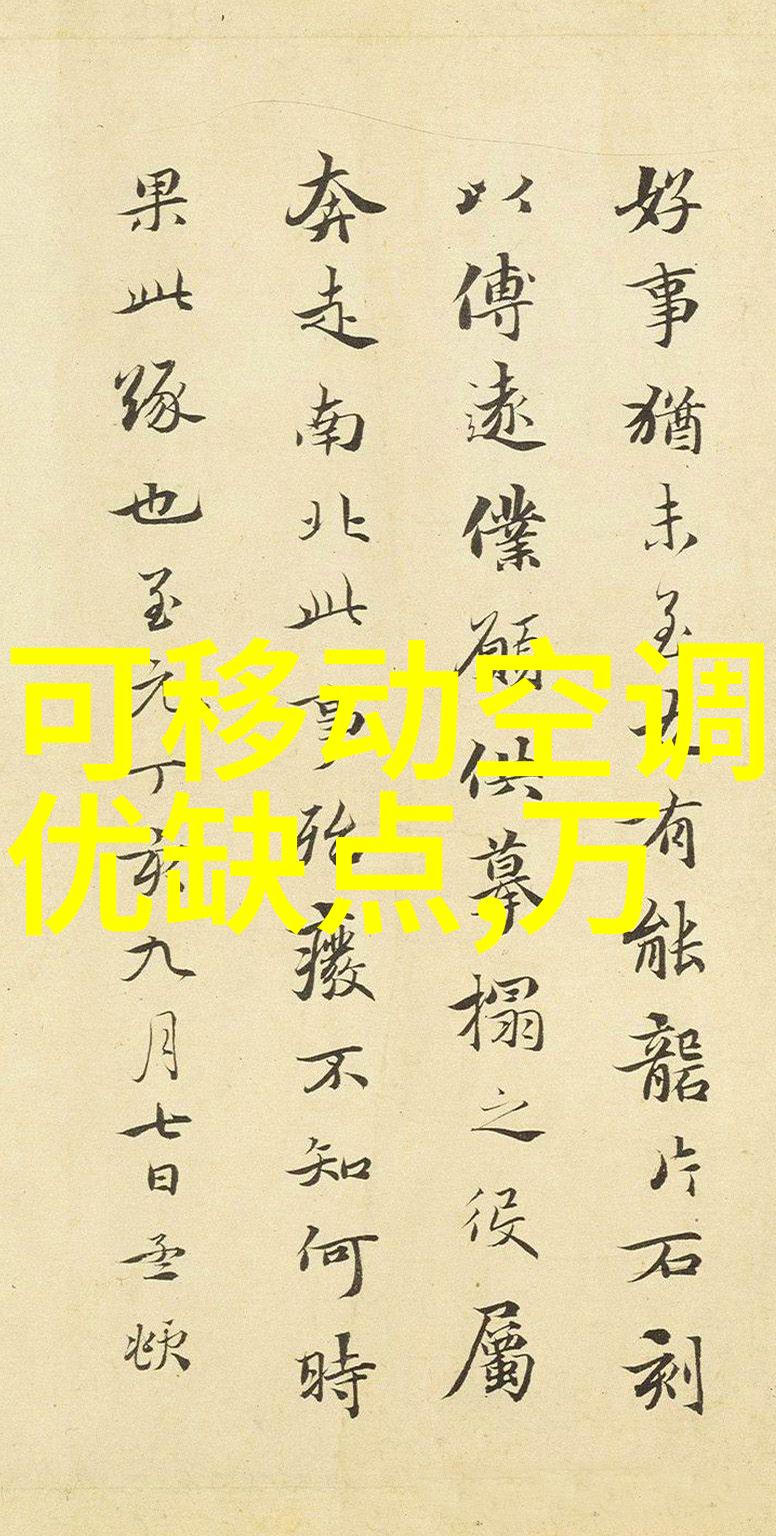 好事猶未至又有能龍片石刻
以傳遠僕願供摹搨之役屬
奔走南北此事殆癈不知何時
果此緣也至元丁亥九月七日孟頫
可移动空调
优缺点,万